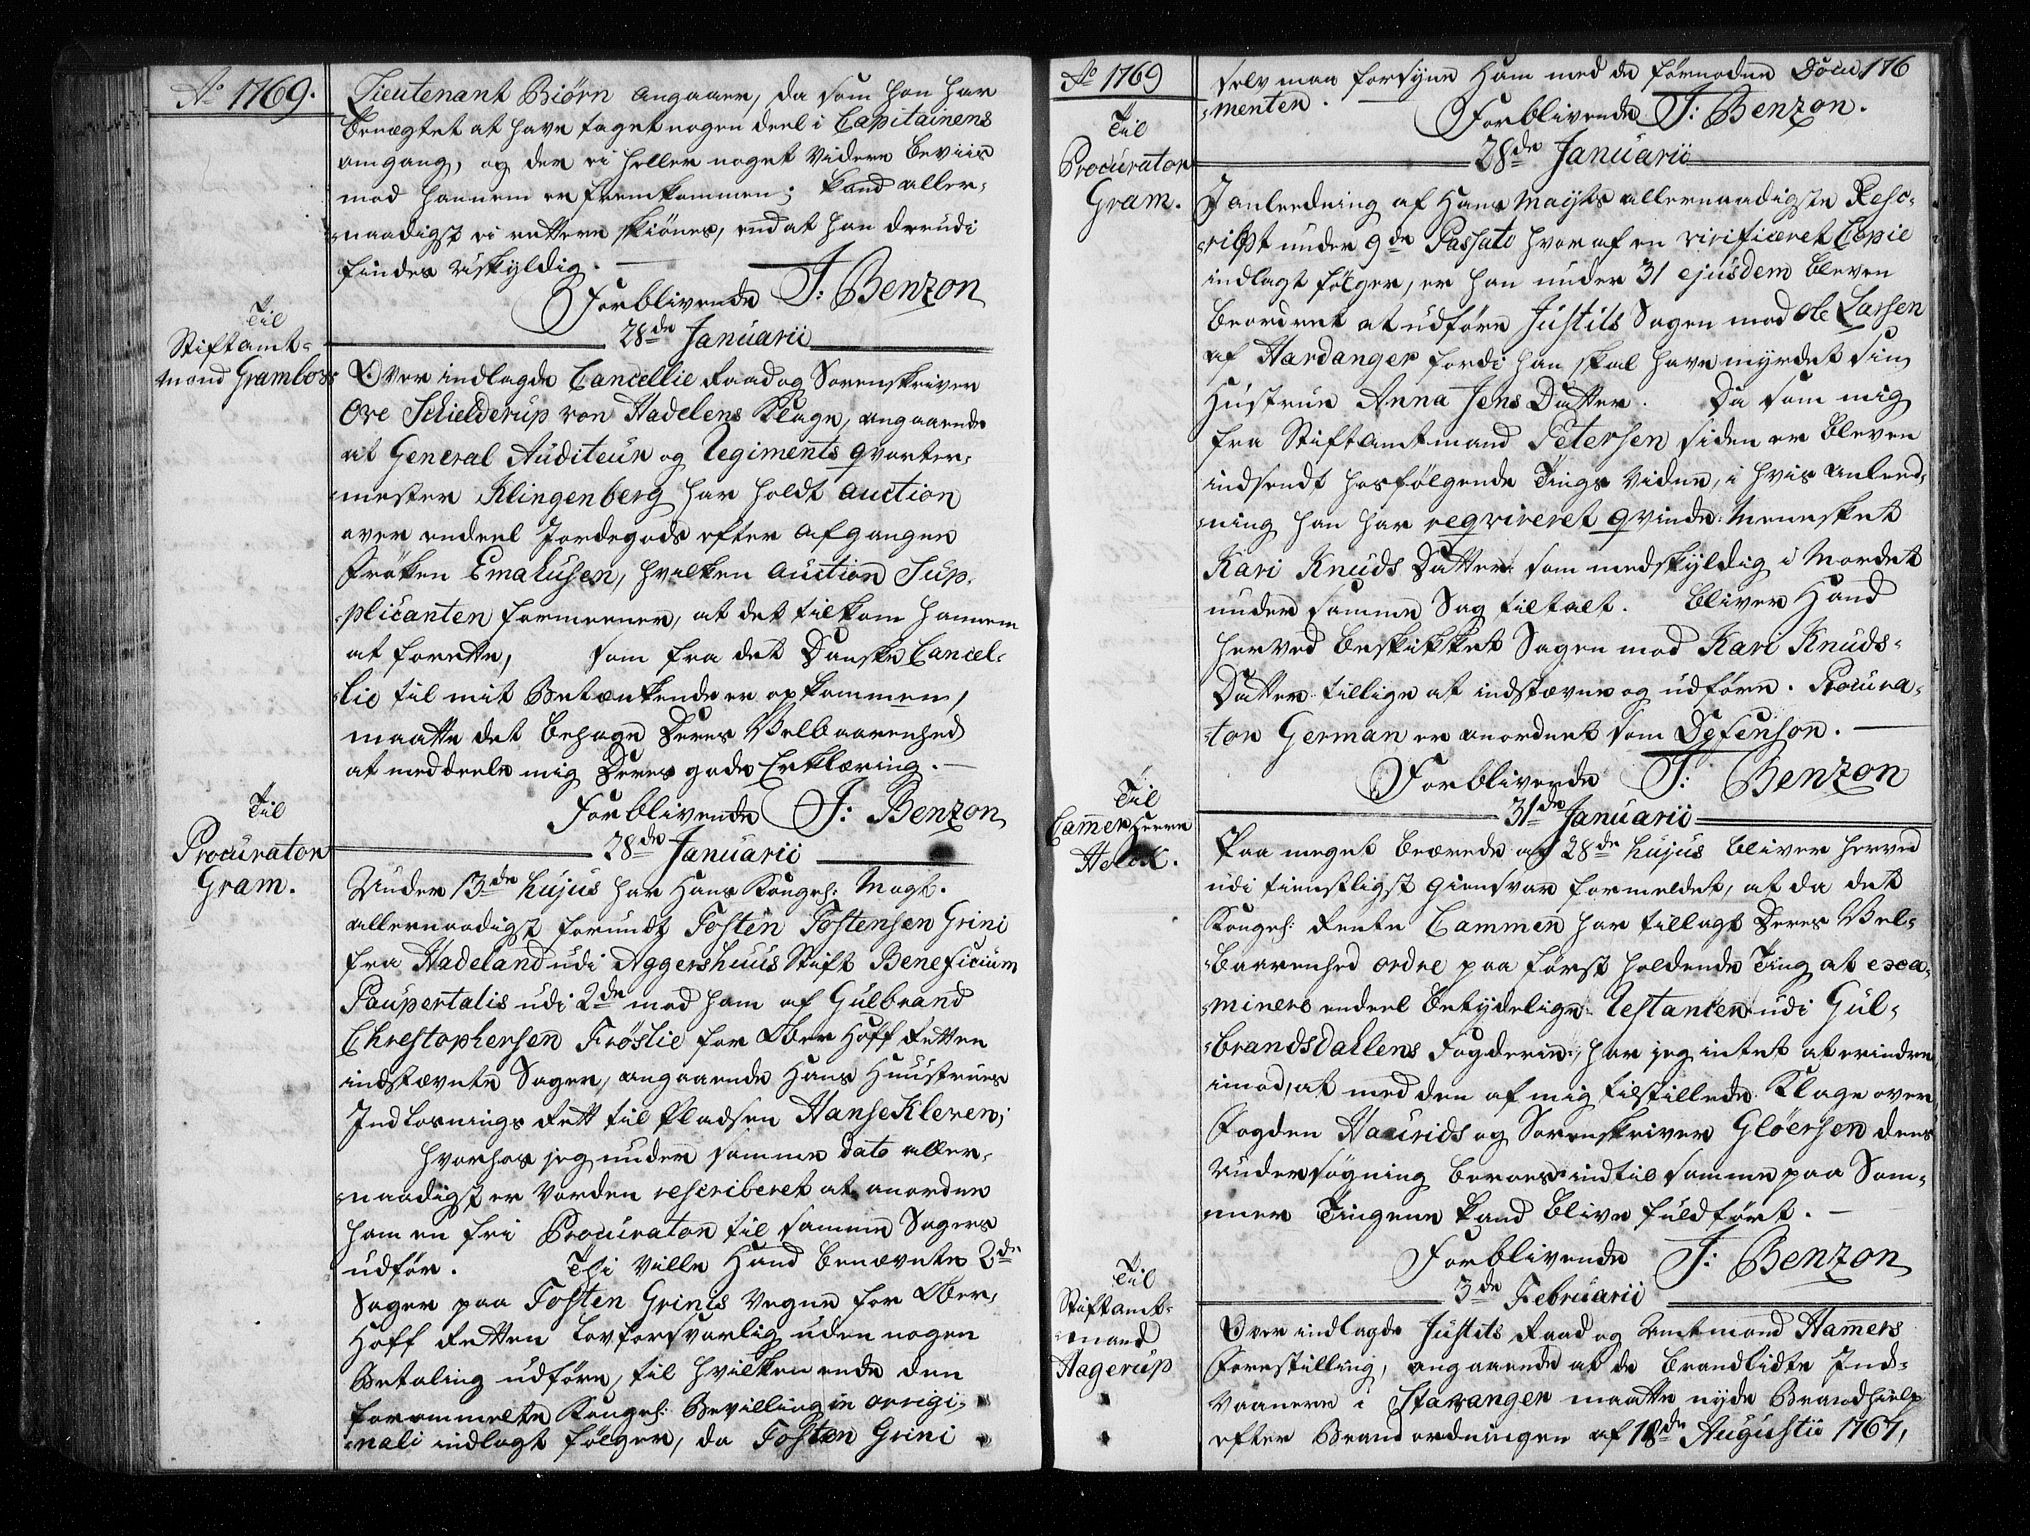 Ao 1769.
Lieutenant Biørn angaaer, da som han har
benægtet at have taget nogen deel i Capitainens
omgang, og der ei heller noget videre beviis
mod hannem er fremkommen; kand aller-
-naadigst ei rettere skiønes, end at han derudi
findes uskyldig.
Forblivende J: Benzon
28de Januarii
Til
Stiftamt-
mand Grambow
Over indlagde Cancellie Raad og Sorenskriver
Ove Schielderup von Hadelens Klage, angaaende
at General Auditeur og Regiments qvarter-
-mester Klingenberg har holdt Auction
over endeel Jordegods efter afgangen
Frøken Emahusen, hvilken Auction Sup-
-plicanten formeener, at det tilkom hannem
at forrette, som fra det Danske Cancel-
-lie til mit Betænkende er opkommen,
maatte det behage Deres Velbaarenhed
at meddeele mig Deres gode Erklæring.
Forblivende J: Benzon
28de Januarii
Til
Procurator
Gram.
Under 13de hujus har Hans Kongel: Mayt.
allernaadigst forundt Tosten Tostensen Grini
fra Hadeland udi Aggershuus Stift Beneficium
Paupertatis udi 2de mod ham af Gulbrand
Christophersen Frøslie for Ober Hoff Retten
indstævnte Sager, angaaende Hans Huustrues
Indløsnings Rett til Pladsen HanseKleven;
hvorhos jeg under samme dato aller-
-naadigst er vorden rescriberet at anordne
ham en fri Procurator til samme Sagers
udfør. Thi ville Hand benævnte 2de
Sager paa Tosten Grinis Vegne for Ober-
Hoff Retten lovforsvarlig uden nogen
Betaling udføre, til hvilken ende den
forommeldte Kongel: Bevilling in origi-
-nali indlagt følger, da Tosten Grini
Ao 1769
176
selv maa forsyne Ham med de fornødne Docu-
-menter.
Forblivende J: Benzon.
28de Januarii
Til
Procurator
Gram.
I anleedning af Hans Mayts allernaadigste Resc-
-ript under 9de Passato hvoraf en vivificeret Copie
indlagt følger, er han under 31 ejusdem bleven
beordret at udføre Justits Sagen mod Ole Larsen
af Hardanger fordi han skal have myrdet sin
Hustrue Anna Jens Datter. Da som mig
fra Stiftamtmand Petersen siden er bleven
indsendt hosfølgende Tings Vidne, i hvis anleed-
-ning han har reqvireret qvinde Mennesket
Kari Knuds Datter som medskyldig i Mordet
under samme Sag tiltalt. bliver Hand
herved beskikket Sagen mod Kari Knuds-
Datter tillige at indstævne og udføre. Procura-
-tor German er anordnet som Defensor.
Forblivende J: Benzon
31de Januarii
Til
Cammer Herre
Helck.
Paa meget beærede af 28de hujus bliver herved
udi tienstligst giensvar formeldet, at da det
Kongel: Rente Cammer har tillagt Deres Vel-
-baarenhed ordre paa først holdende Ting at exa-
-minere endeel betydelige Restancer udi Gul-
-brandsdallens Fogderie, har jeg intet at erindre
imod, at med den af mig tilstillede Klage over
Fogden Haurids og Sorenskriver Gløersen dens
Undersøgning beroes indtil samme paa Som-
-mer Tingene kand blive fuldført.
Forblivende J: Benzon
3de Februarii
Til
Stiftamt-
-mand
Hagerup
Over indlagde Justits Raad og Amtmand Hamers
Forestilling, angaaende at de brandlidte Ind-
vaanere i Stavanger maatte nyde Brandhielp
efter Brand ordningen af 18de Augustii 1767,